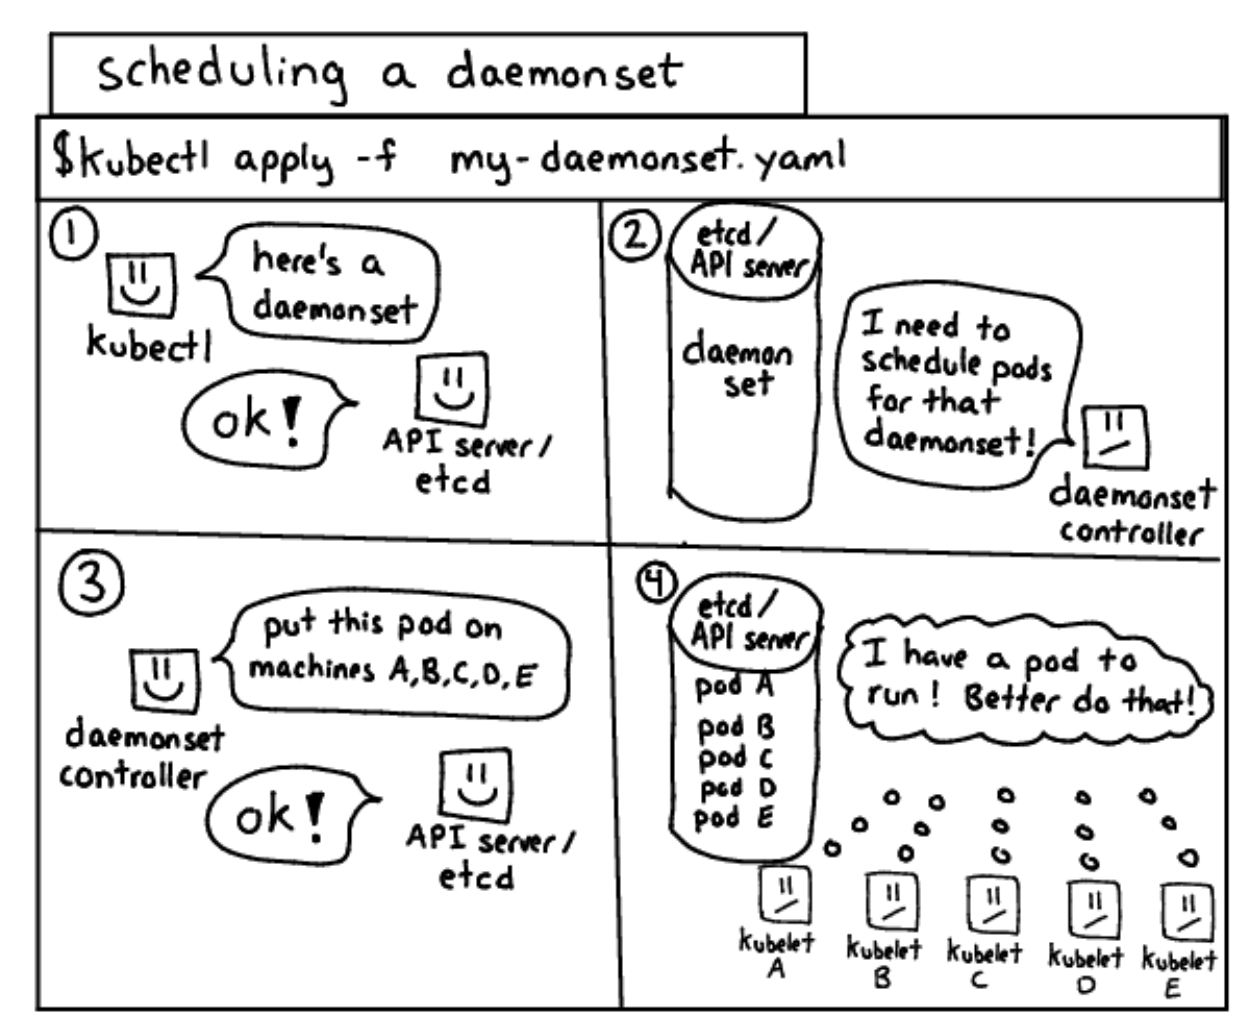 scheduling a daemonset
$kubectl apply -f my-daemonset.yaml
1
here's a
daemonset
kubectl
ok!
API server/
etcd
2
etcd/
API server
daemon
set
I need to
schedule pods
for that
daemonset!
daemonset
controller
3
put this pod on
machines A,B,C,D,E
daemonset
controller
ok!
API server/
etcd
4
etcd/
API server
pod A
pod B
pod C
pod D
pod E
I have a pod to
run! Better do that!
kubelet
A
kubelet
B
kubelet
C
kubelet
D
kubelet
E